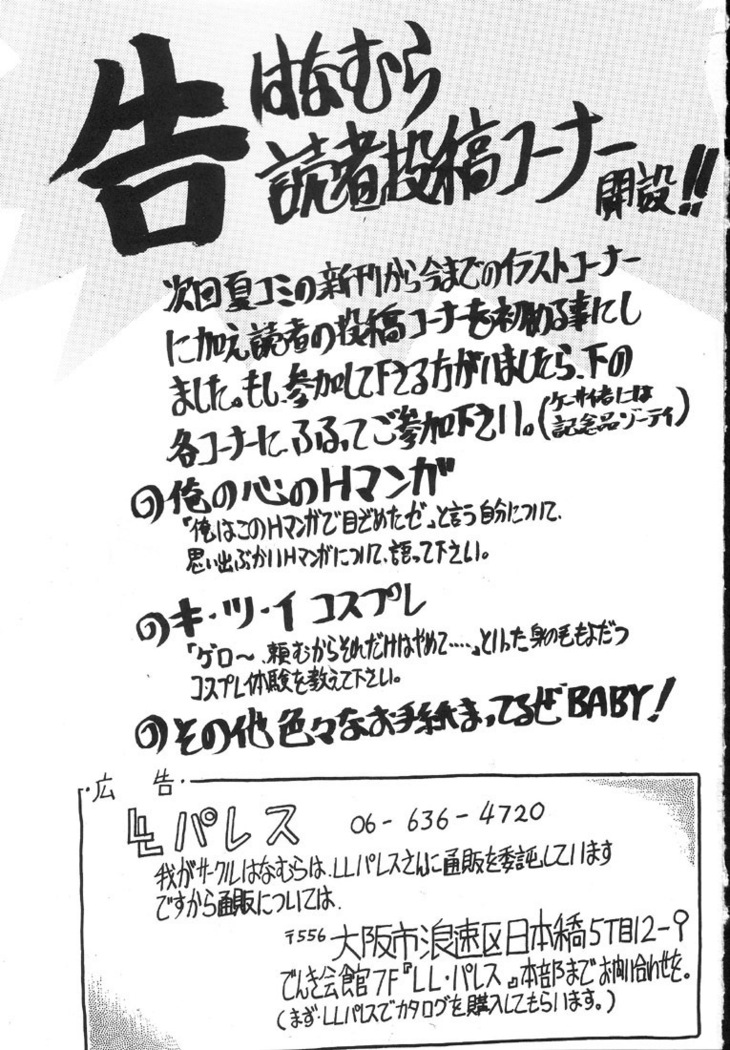 告 はなむら
読者投稿コーナー
開設!!
次回夏コミの新刊から今までのイラストコーナー
に加え読者の投稿コーナーを初める事にし
ました。もし、参加して下さる方がいましたら、下の
各コーナーに、ふるってご参加下さい。(ケーサイ者には
記念品ゾーテイ)
俺の心のHマンガ
「俺はこのHマンガで目ざめたぜ」と言う自分について、
思い出ぶかいHマンガについて、語って下さい。
キ・ツ・イ コスプレ
「ゲロ〜、頼むからそれだけはやめて‥‥」といった身の毛もよだつ
コスプレ体験を教えて下さい。
その他色々なお手紙まってるぜBABY!
・広 告・
LLパレス 06-636-4720
我がサークルはなむらは、LLパレスさんに通販を委託しています
ですから通販については、
〒556 大阪市浪速区日本橋5丁目12-9
でんき会館7F『LL・パレス』本部までお問い合わせを。
(まず、LLパレスでカタログを購入してもらいます。)